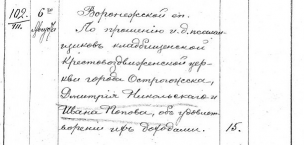 102. 6го Воронежской еп.
III. Августа По прошению и.д. псалом-
щиковъ кладбищенской
Крестовоздвиженской цер-
кви города Острогожска,
Дмитрія Никольскаго и
Ивана Попова, объ удовлет-
вореніи ихъ доходами. 15.